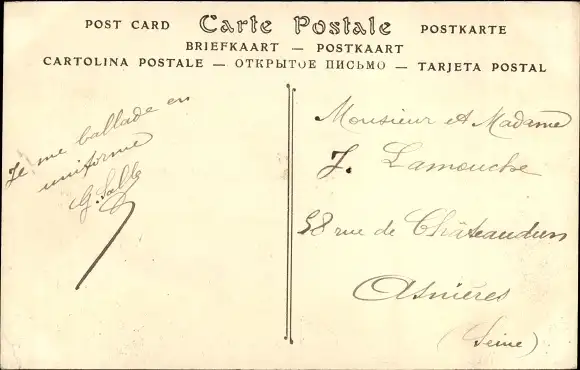 POST CARD Carte Postale POSTKARTE
BRIEFKAART — POSTKAART
CARTOLINA POSTALE — ОТКРЫТОЕ ПИСЬМО — TARJETA POSTAL
Je me ballade en
uniforme
G. Salle
Monsieur et Madame
J. Lamouche
58 rue de Châteaudun
Asnières
(Seine)